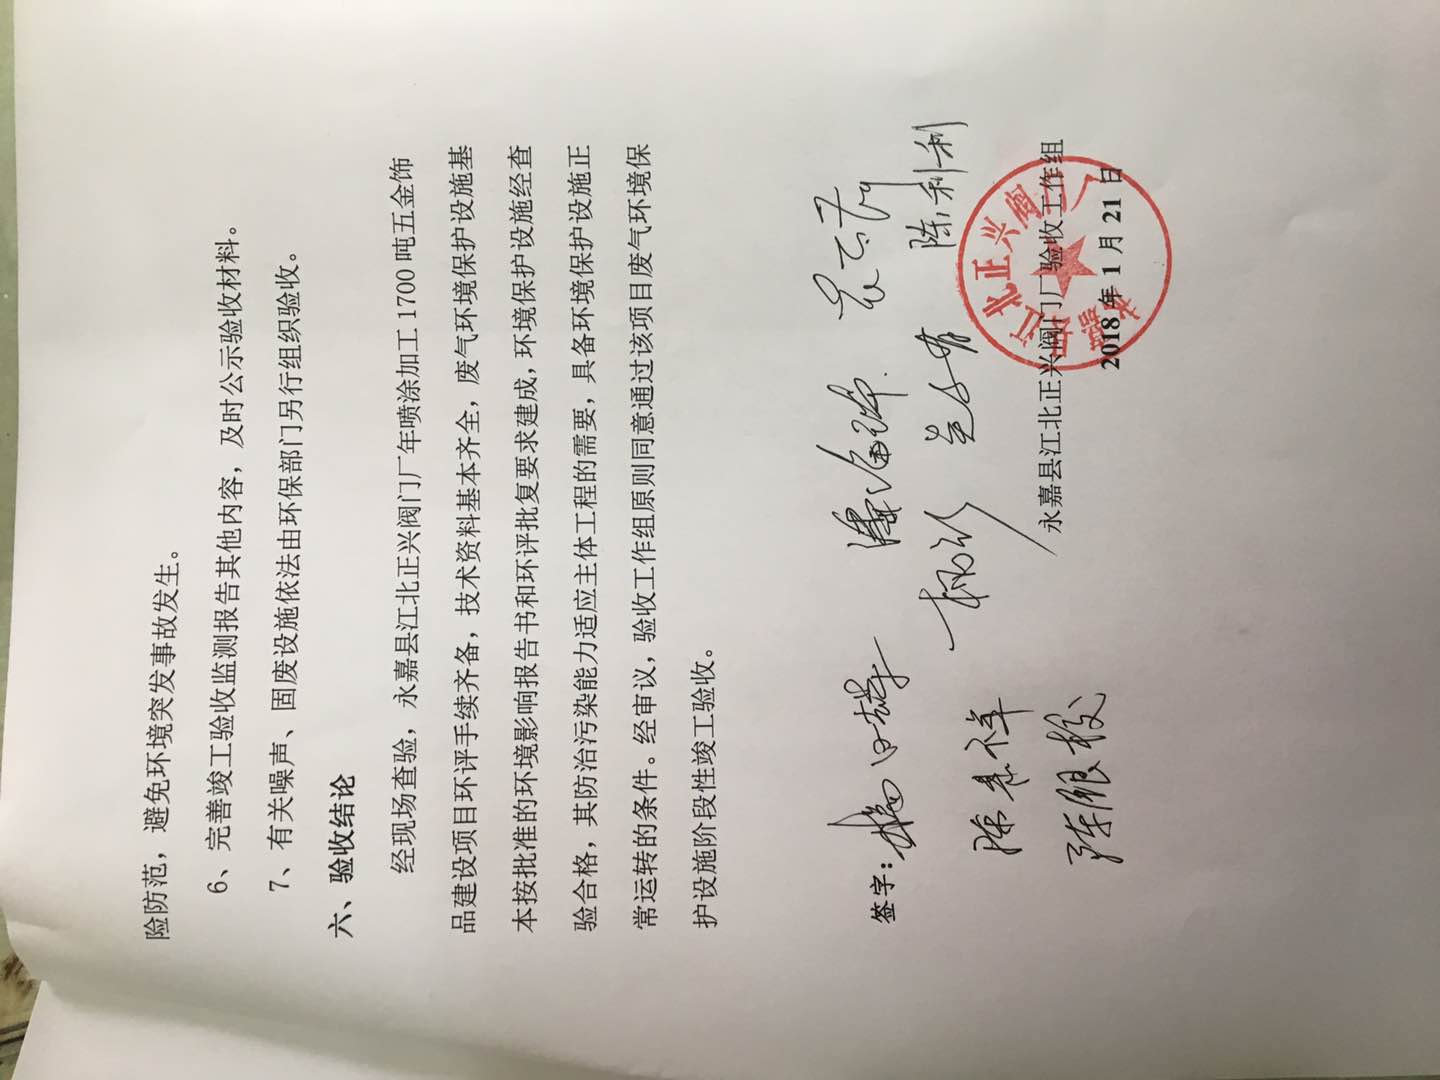 险防范，避免环境突发事故发生。
6、完善竣工验收监测报告其他内容，及时公示验收材料。
7、有关噪声、固废设施依法由环保部门另行组织验收。
六、验收结论
经现场查验，永嘉县江北正兴阀门厂年喷涂加工1700吨五金饰
品建设项目环评手续齐备，技术资料基本齐全，废气环境保护设施基
本按批准的环境影响报告书和环评批复要求建成，环境保护设施经查
验合格，其防治污染能力适应主体工程的需要，具备环境保护设施正
常运转的条件。经审议，验收工作组原则同意通过该项目废气环境保
护设施阶段性竣工验收。
签字：
陈利利
永嘉县江北正兴阀门厂验收工作组
2018年1月21日